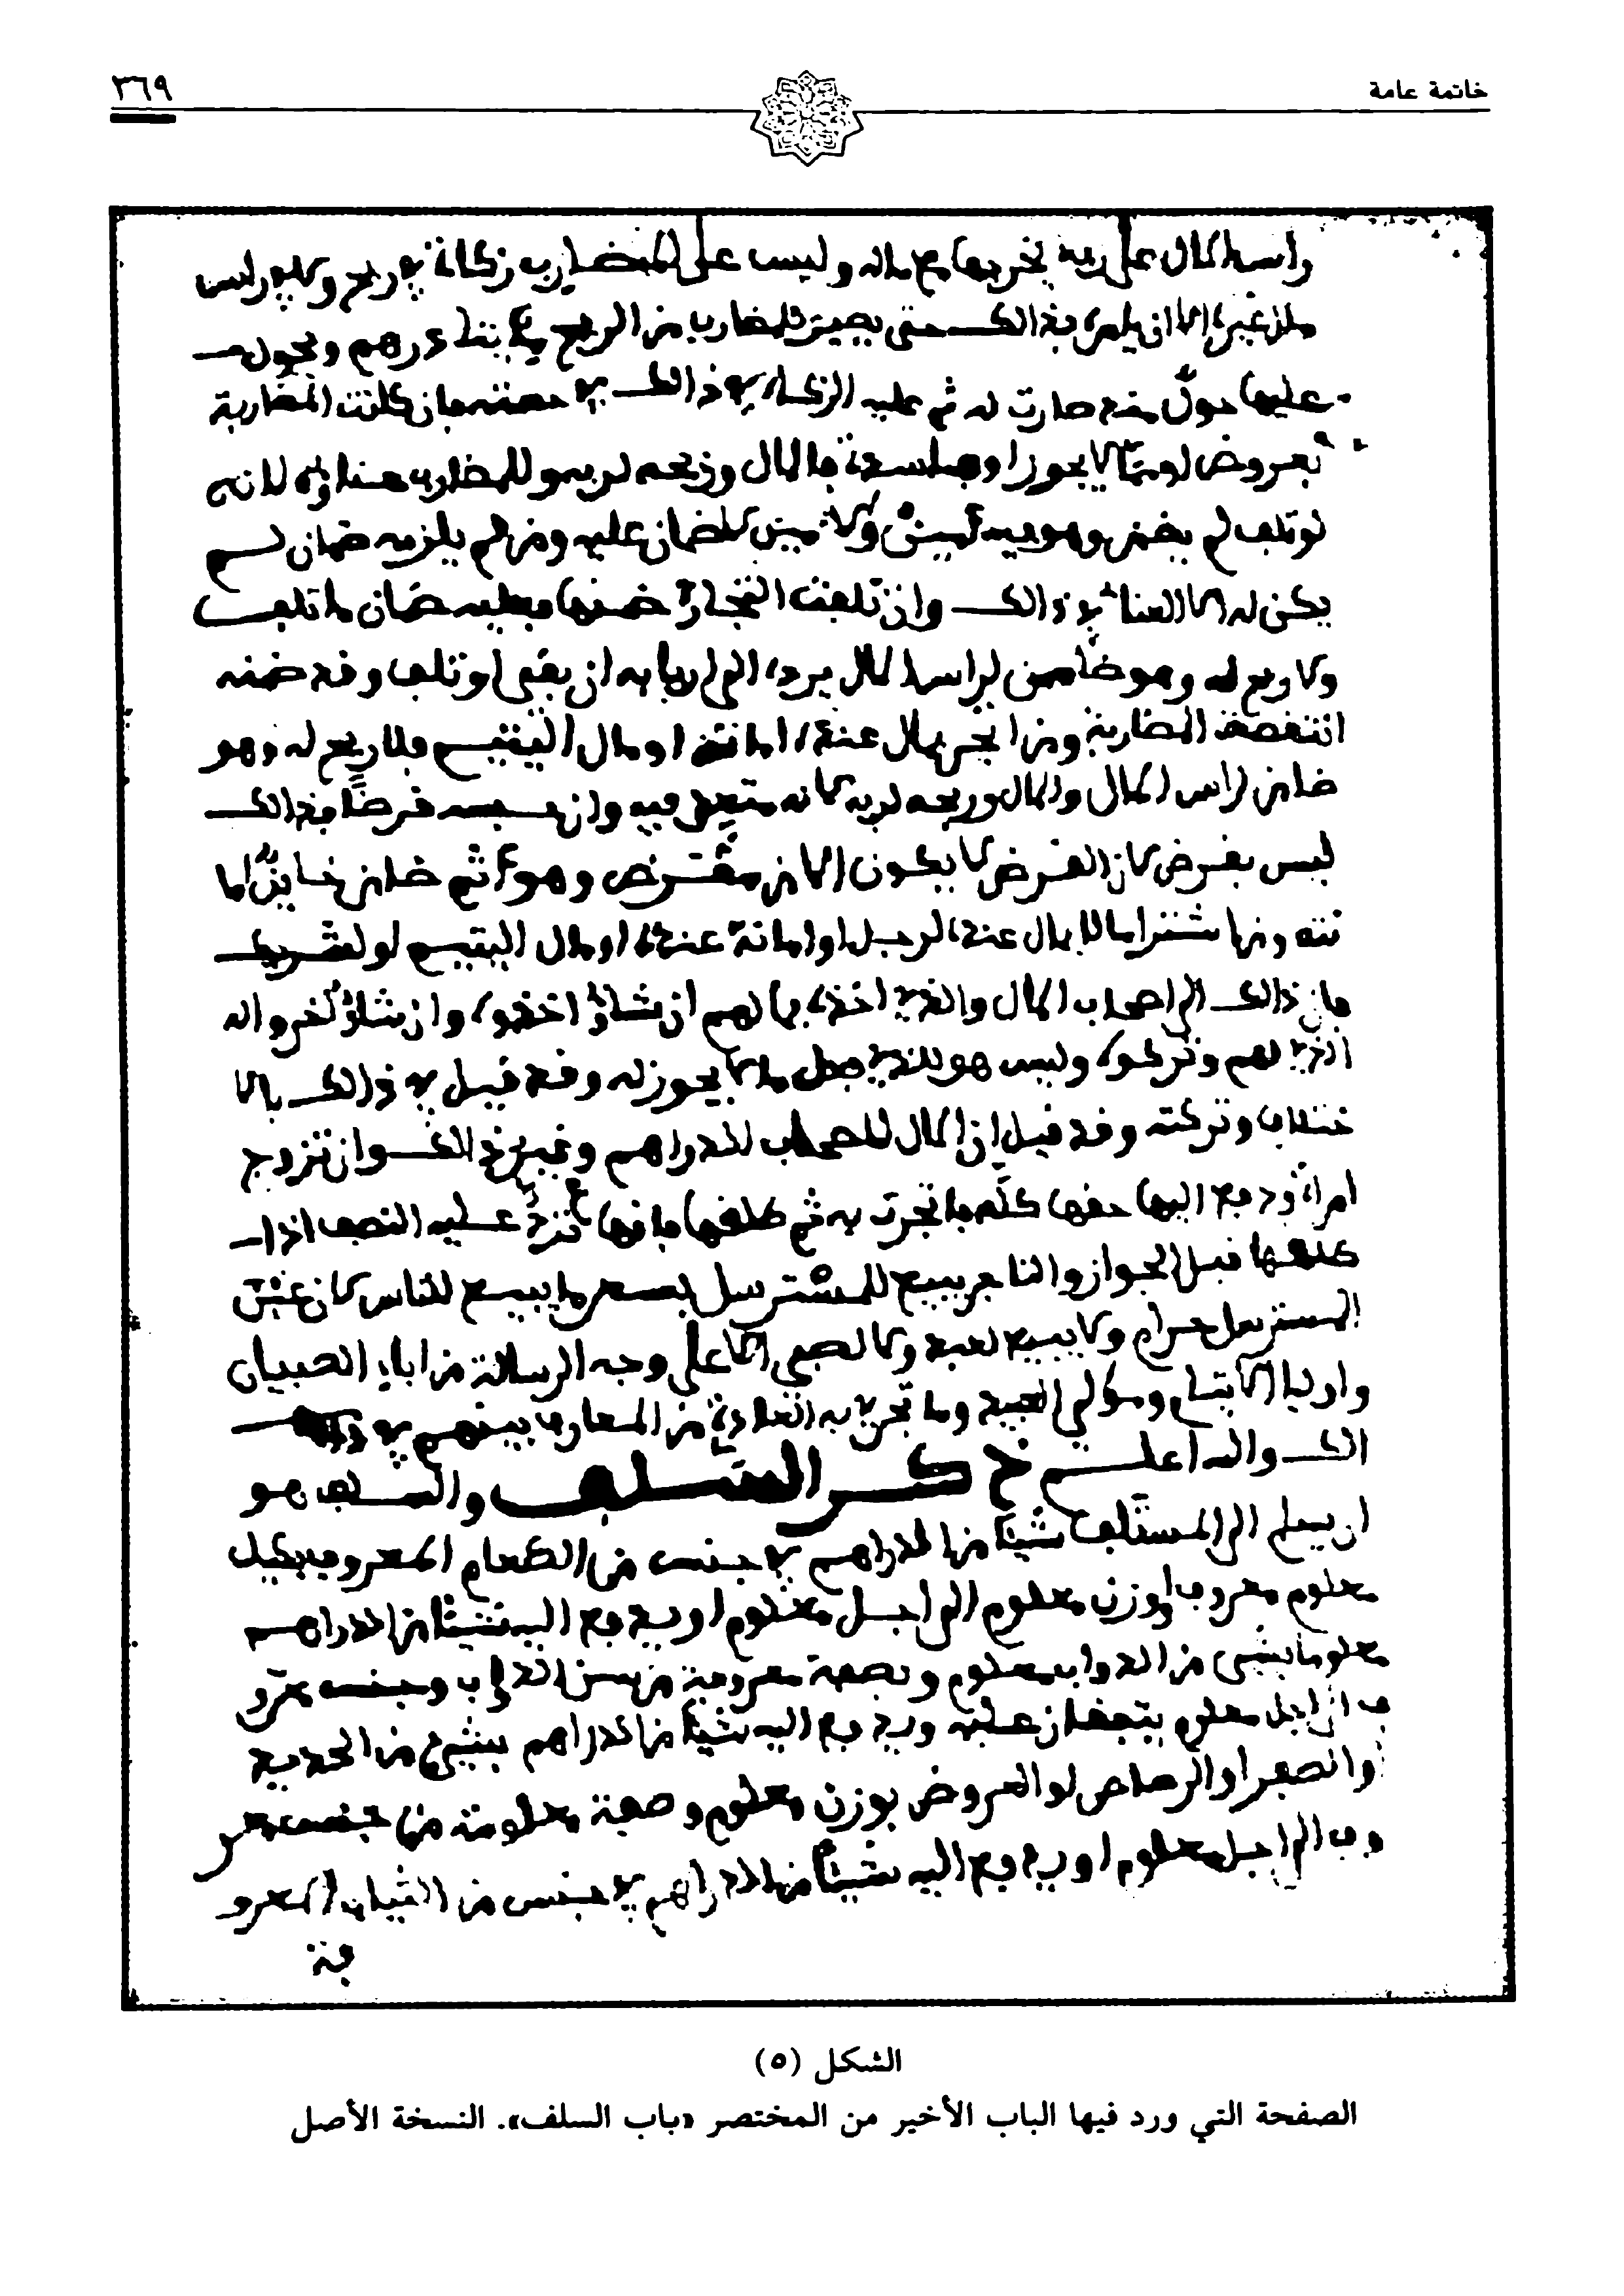 خاتمة عامة
٣٦٩
راس المال على ربه يخرجها مع ماله وليس على المضارب زكاة في ربح وكيو رليس
حتى يصير للمضارب من الربح درهم ويحول
عليها حول منذ صارت له ثم عليه الزكاة في ذالك في حصته فان كانت المضاربة
بعروض او مما لا يجوز او فاسدة فالمال وربحه لربه وللمضارب عناؤه لانه
لو تلف لم يضمن وهو فيه امين ولا ضمان عليه ومن لم يلزمه ضمان لم
يكن له الا العناء في ذالك وان تلفت التجارة ضمنها فعليه ضمان ما تلف
ولا ربح له وهو ضامن لراس المال يرده الى اربابه ان بقي او تلف وقد ضمنه
انتقضت المضاربة ومن اتجر بمال عنده امانة او مال اليتيم فلا ربح له وهو
ضامن لراس المال والمال وربحه لربه لانه متعد فيه وان حسبه قرضا فذالك
ليس بقرض لان القرض لا يكون الا من مقترض وهو آثم ضامن خاين اما
نته ومن اشترا مالا بمال عنده لرجل او امانة عنده او مال اليتيم او لشريك
فان ذالك الى اصحاب المال والذي اخذه بما لهم ان شاؤا اخذوه وان شاؤا اخذوا له
الذي لهم وتركوه وليس هو للذي فعل ما لا يجوز له وقد قيل في ذالك بالا
ختلاف وتركته وقد قيل ان المال لاصحاب الدراهم وغير ذالك وان تزوج
امراة ودفع اليها حقها كله فاتجرت به ثم طلقها فانها ترد عليه النصف اذا
طلقها قبل الجواز والتاجر يبيع للمسترسل بسعر ما يبيع للناس لان غبن
المسترسل حرام ولا يبيع لعبد ولا لصبي الا على وجه الرسالة من اباء الصبيان
واوليا الايتام وموالي العبيد وما تجري به العادة من المعارف بينهم في
الك والله اعلم ذكر السلف والسلف هو
ان يسلم الى المستلف شيئا من الدراهم في جنس من الطعام المعروف بكيل
معلوم معروف او وزن معلوم الى اجل معلوم او يدفع اليه شيئا من الدراهم
معلوما بشي من الدواب معلوم وبصفة معروفة من سن الدواب وجنس معرو
ف الى اجل معلوم يتفقان عليه ويدفع اليه شيئا من الدراهم بشيء من الحديد
والصفر او الرصاص او العروض بوزن معلوم وصفة معلومة من جنس معر
وف الى اجل معلوم او يدفع اليه شيئا من الدراهم في جنس من الثياب المعرو
فة
الشكل (٥)
الصفحة التي ورد فيها الباب الأخير من المختصر «باب السلف». النسخة الأصل